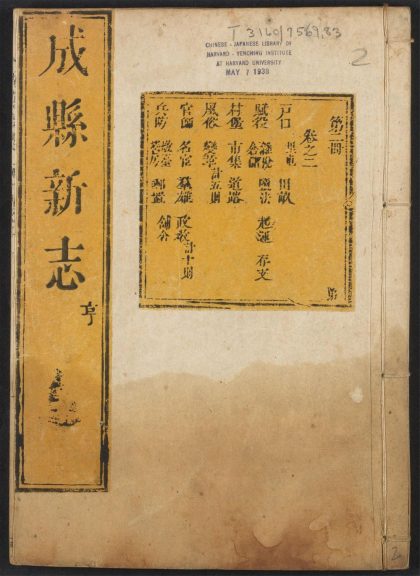 成縣新志
亨
T 3140/7569.83
CHINESE - JAPANESE LIBRARY OF
HARVARD - YENCHING INSTITUTE
AT HARVARD UNIVERSITY
MAY 7 1938
2
第二冊
卷之二
戶口 田畝
賦役 起運 存支
村堡 市集 道路
風俗 計五則
官師 名官 政教 計十則
兵防
2